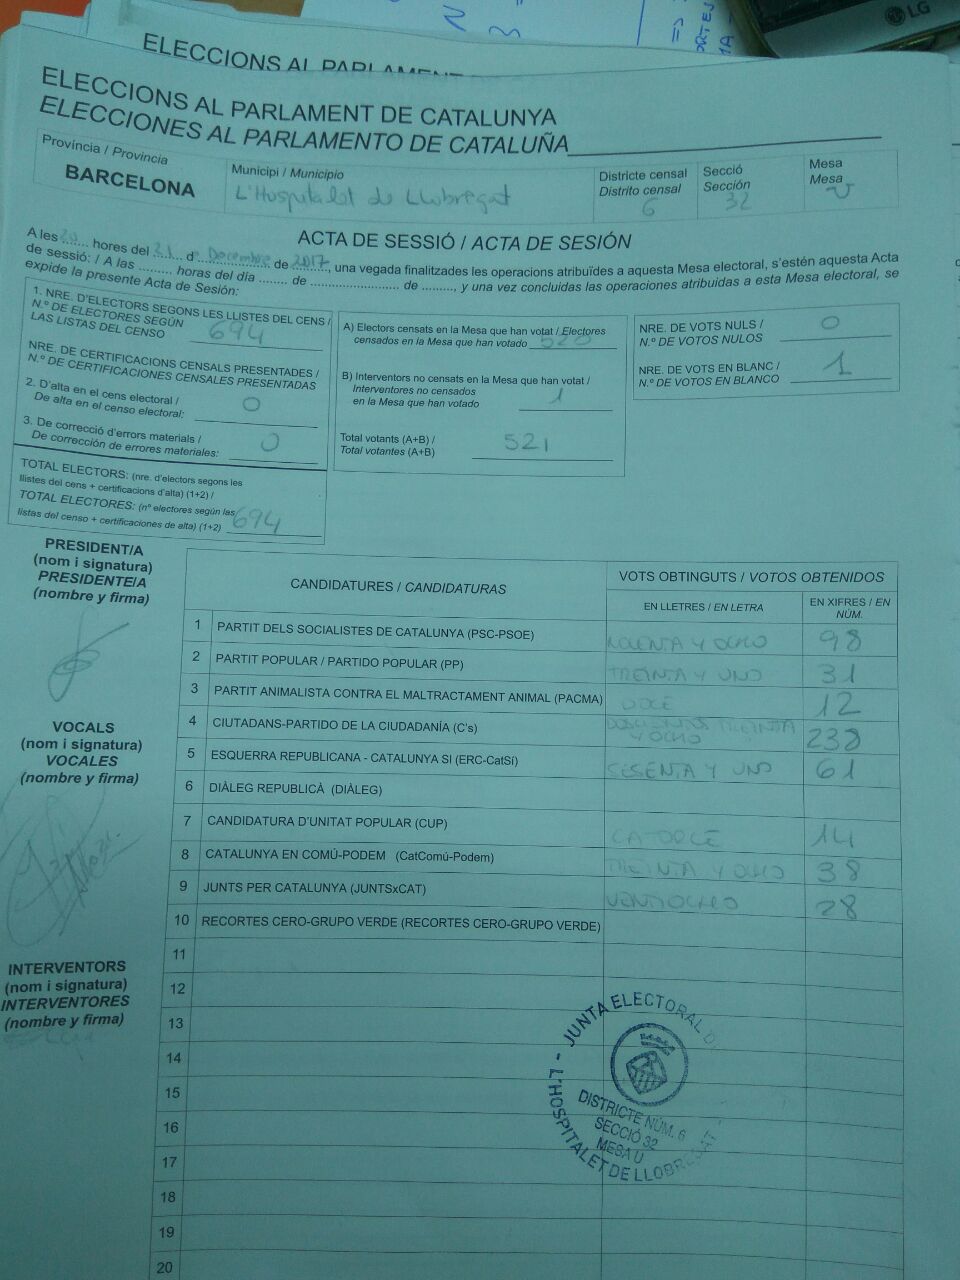 LG
ELECCIONS AL PARLAMENT
ELECCIONS AL PARLAMENT DE CATALUNYA
ELECCIONES AL PARLAMENTO DE CATALUÑA
Província / Provincia
BARCELONA
Municipi / Municipio
L'Hospitalet de Llobregat
Districte censal
Distrito censal
6
Secció
Sección
32
Mesa
Mesa
U
ACTA DE SESSIÓ / ACTA DE SESIÓN
A les 20 hores del 21 d' Decembre de 2017, una vegada finalitzades les operacions atribuïdes a aquesta Mesa electoral, s'estén aquesta Acta
de sessió: / A las ......... horas del día ........ de ........................ de ........., y una vez concluidas las operaciones atribuidas a esta Mesa electoral, se
expide la presente Acta de Sesión:
1. NRE. D'ELECTORS SEGONS LES LLISTES DEL CENS /
N.º DE ELECTORES SEGÚN
LAS LISTAS DEL CENSO
694
NRE. DE CERTIFICACIONS CENSALS PRESENTADES /
N.º DE CERTIFICACIONES CENSALES PRESENTADAS
2. D'alta en el cens electoral /
De alta en el censo electoral:
0
3. De correcció d'errors materials /
De corrección de errores materiales:
0
TOTAL ELECTORS: (nre. d'electors segons les
llistes del cens + certificacions d'alta) (1+2) /
TOTAL ELECTORES: (nº electores según las
listas del censo + certificaciones de alta) (1+2)
694
A) Electors censats en la Mesa que han votat / Electores
censados en la Mesa que han votado
520
B) Interventors no censats en la Mesa que han votat /
Interventores no censados
en la Mesa que han votado
1
Total votants (A+B) /
Total votantes (A+B)
521
NRE. DE VOTS NULS /
N.º DE VOTOS NULOS
0
NRE. DE VOTS EN BLANC /
N.º DE VOTOS EN BLANCO
1
PRESIDENT/A
(nom i signatura)
PRESIDENTE/A
(nombre y firma)
VOCALS
(nom i signatura)
VOCALES
(nombre y firma)
INTERVENTORS
(nom i signatura)
INTERVENTORES
(nombre y firma)
CANDIDATURES / CANDIDATURAS
VOTS OBTINGUTS / VOTOS OBTENIDOS
EN LLETRES / EN LETRA
EN XIFRES / EN
NÚM.
1 PARTIT DELS SOCIALISTES DE CATALUNYA (PSC-PSOE) NOVENTA Y OCHO 98
2 PARTIT POPULAR / PARTIDO POPULAR (PP) TREINTA Y UNO 31
3 PARTIT ANIMALISTA CONTRA EL MALTRACTAMENT ANIMAL (PACMA) DOCE 12
4 CIUTADANS-PARTIDO DE LA CIUDADANÍA (C's) DOSCIENTOS TREINTA Y OCHO 238
5 ESQUERRA REPUBLICANA - CATALUNYA SI (ERC-CatSí) SESENTA Y UNO 61
6 DIÀLEG REPUBLICÀ (DIÀLEG)
7 CANDIDATURA D'UNITAT POPULAR (CUP) CATORCE 14
8 CATALUNYA EN COMÚ-PODEM (CatComú-Podem) TREINTA Y OCHO 38
9 JUNTS PER CATALUNYA (JUNTSxCAT) VENTIOCHO 28
10 RECORTES CERO-GRUPO VERDE (RECORTES CERO-GRUPO VERDE)
11
12
13
14
15
16
17
18
19
20
JUNTA ELECTORAL D
L'HOSPITALET DE LLOBREGAT
DISTRICTE NÚM. 6
SECCIÓ 32
MESA U